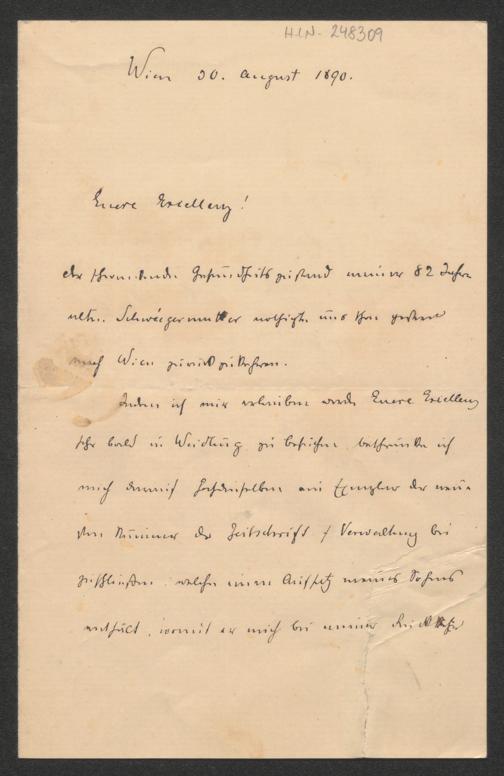 H.I.N. 248309
Wien 30. August 1890.
Euere Excellenz!
der schwankende Gesundheitszustand meiner 82 Jahre
alten Schwiegermutter nöthigte uns schon gestern
nach Wien zurückzukehren.
Indem ich mir erlauben werde Euere Excellenz
sehr bald in Weidling zu besuchen, beschränke ich
mich darauf Hochdenselben ein Exemplar der neue-
sten Nummer der Zeitschrift f Verwaltung bei
zuschließen, welche einen Aufsatz meines Sohnes
enthält, womit er mich bei meiner Rückkehr